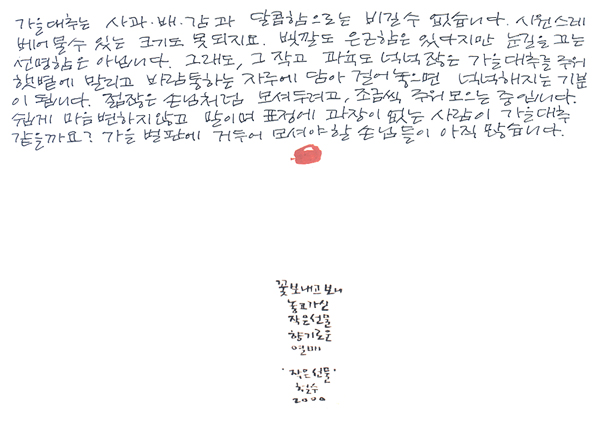 가을대추는 사과·배·감과 달콤함으로는 비길수 없습니다. 시원스레
베어물수 있는 크기도 못되지요. 빛깔도 은근함은 있다지만 눈길을 끄는
선명함은 아닙니다. 그래도, 그 작고 과육도 넉넉잖은 가을대추를 주워
햇볕에 말리고 바람통하는 자루에 담아 걸어놓으면 넉넉해지는 기분
이 됩니다. 점잖은 손님처럼 모셔두려고, 조금씩 주워모으는 중입니다.
쉽게 마음변하지않고 말이며 표정에 과장이 없는 사람이 가을대추
같을까요? 가을 벌판에 거두어 모셔야할 손님들이 아직 많습니다.
꽃보내고 보니
놓고가신
작은선물
향기로운
열매
'작은선물'
철수
2000